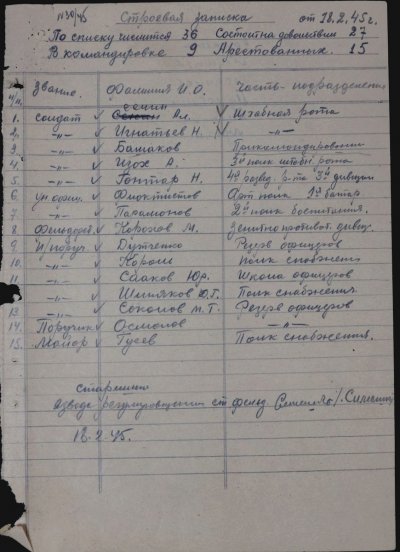 N30/45 Строевая записка от 18.2.45 г.
По списку числится 36 Состоит на довольствии 27
В командировке 9 Арестованных 15
Звание. Фамилия И.О. Часть-подразделение
1. Солдат Ал. Штабная рота
2. -"- Игнатьев Н. -"-
3. -"- Башаков Прикомандирован
4. -"- Изох А. 3й полк штабн. рота
5. -"- Гонтар Н. 3й дивизии
6. Ун.офиц. Феоктистов Арт полк 1я батар.
7. -"- Парамонов 2й полк
8. Фельдфеб. Корогов М. Зенитно противот. дивиз.
9. П/поруч Дутченко Резерв офицеров
10. -"- Король Полк снабжения
11. -"- Сааков Юр. Школа офицеров
-"- Шишяков Ю.Г. Полк снабжения
13. -"- Соколов М.Т. Резерв офицеров
14. Поручик Осмолов -"-
15. Майор Гусев Полк снабжения.
Старшина
взвода регулировщиков ст фельд.
18.2.45.